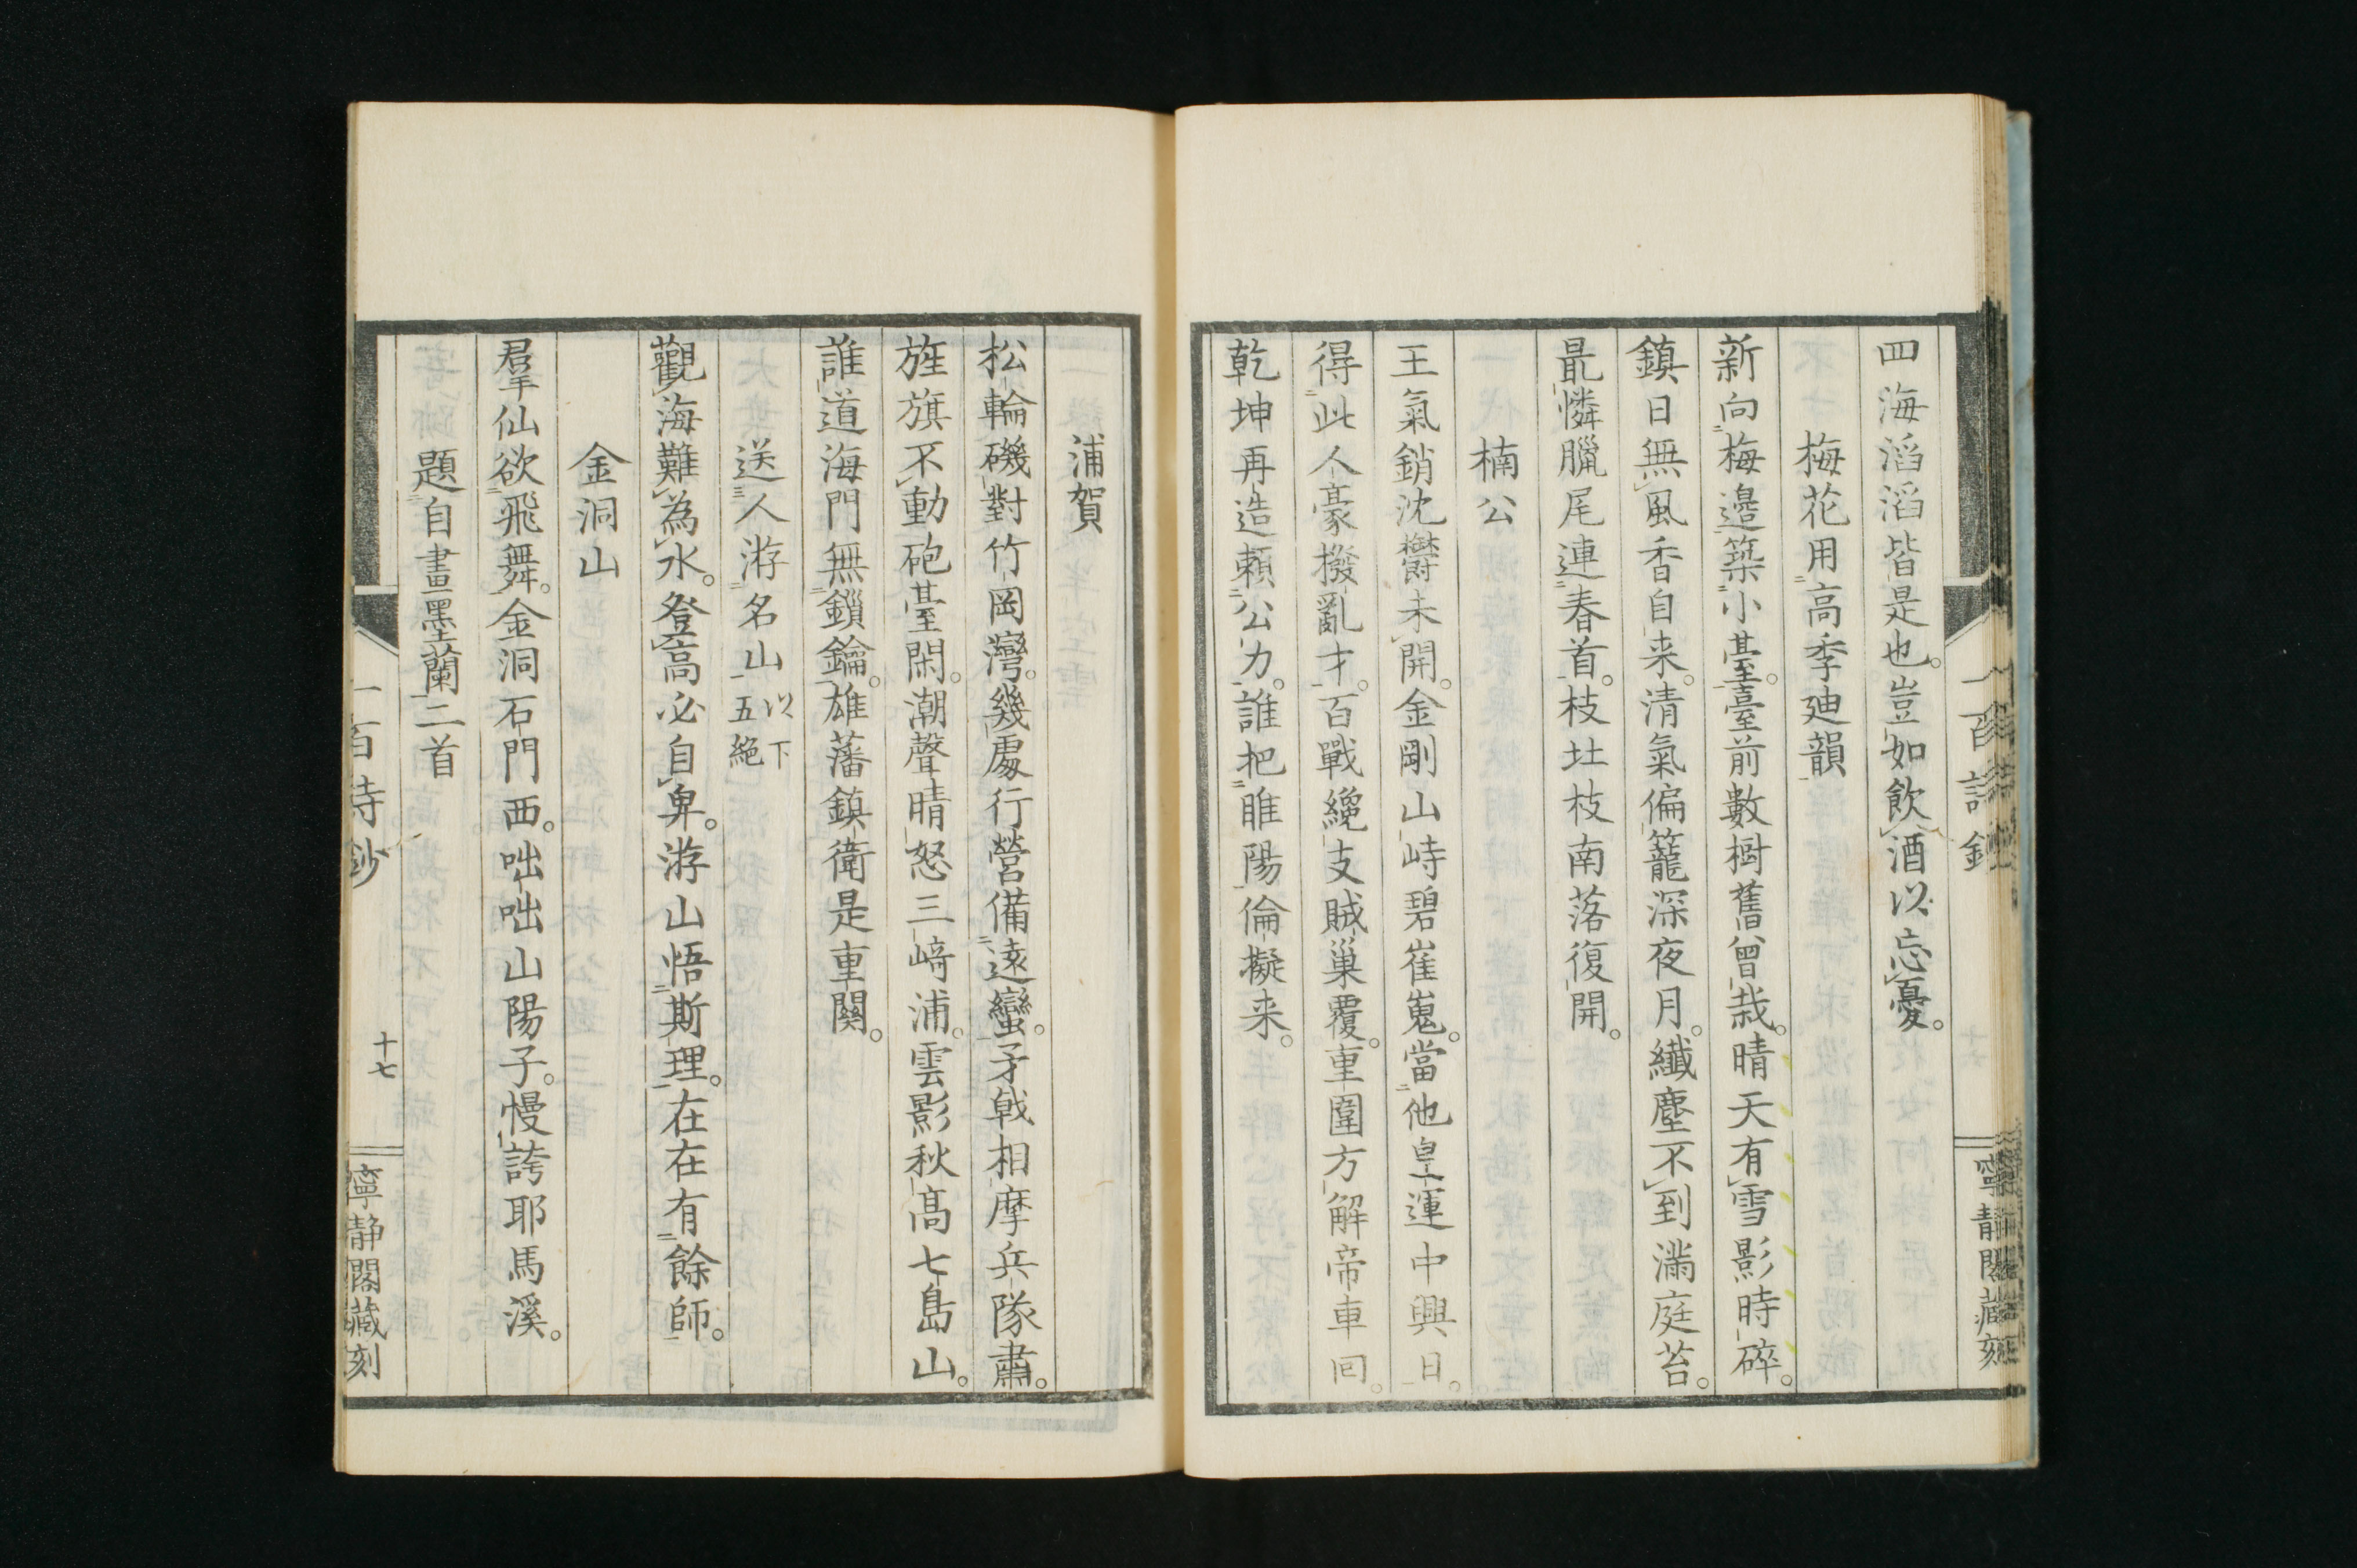 四海滔滔皆是也。豈如飲酒以忘憂。
梅花用高季迪韻
新向梅邊築小臺。臺前數樹舊曾栽。晴天有雪影時碎。
鎮日無風香自来。清氣偏籠深夜月。纖塵不到滿庭苔。
最憐臘尾連春首。枝北枝南落復開。
楠公
王氣銷沈欝未開。金剛山峙碧崔嵬。當他皇運中興日。
得此人豪撥亂才。百戰纔支賊巢覆。重圍方解帝車回。
乾坤再造頼公力。誰把睢陽倫擬来。
浦賀
松輪磯對竹岡灣。幾處行營備遠蠻。矛戟相摩兵隊肅。
旌旗不動砲臺閑。潮聲晴怒三﨑浦。雲影秋高七島山。
誰道海門無鎖鑰。雄藩鎮衛是重關。
送人游名山以下五絶
觀海難為水。登高必自卑。游山悟斯理。在在有餘師。
金洞山
羣仙欲飛舞。金洞石門西。咄咄山陽子。慢誇耶馬溪。
題自畫墨蘭二首
一百詩鈔
十七
寧静閣藏刻